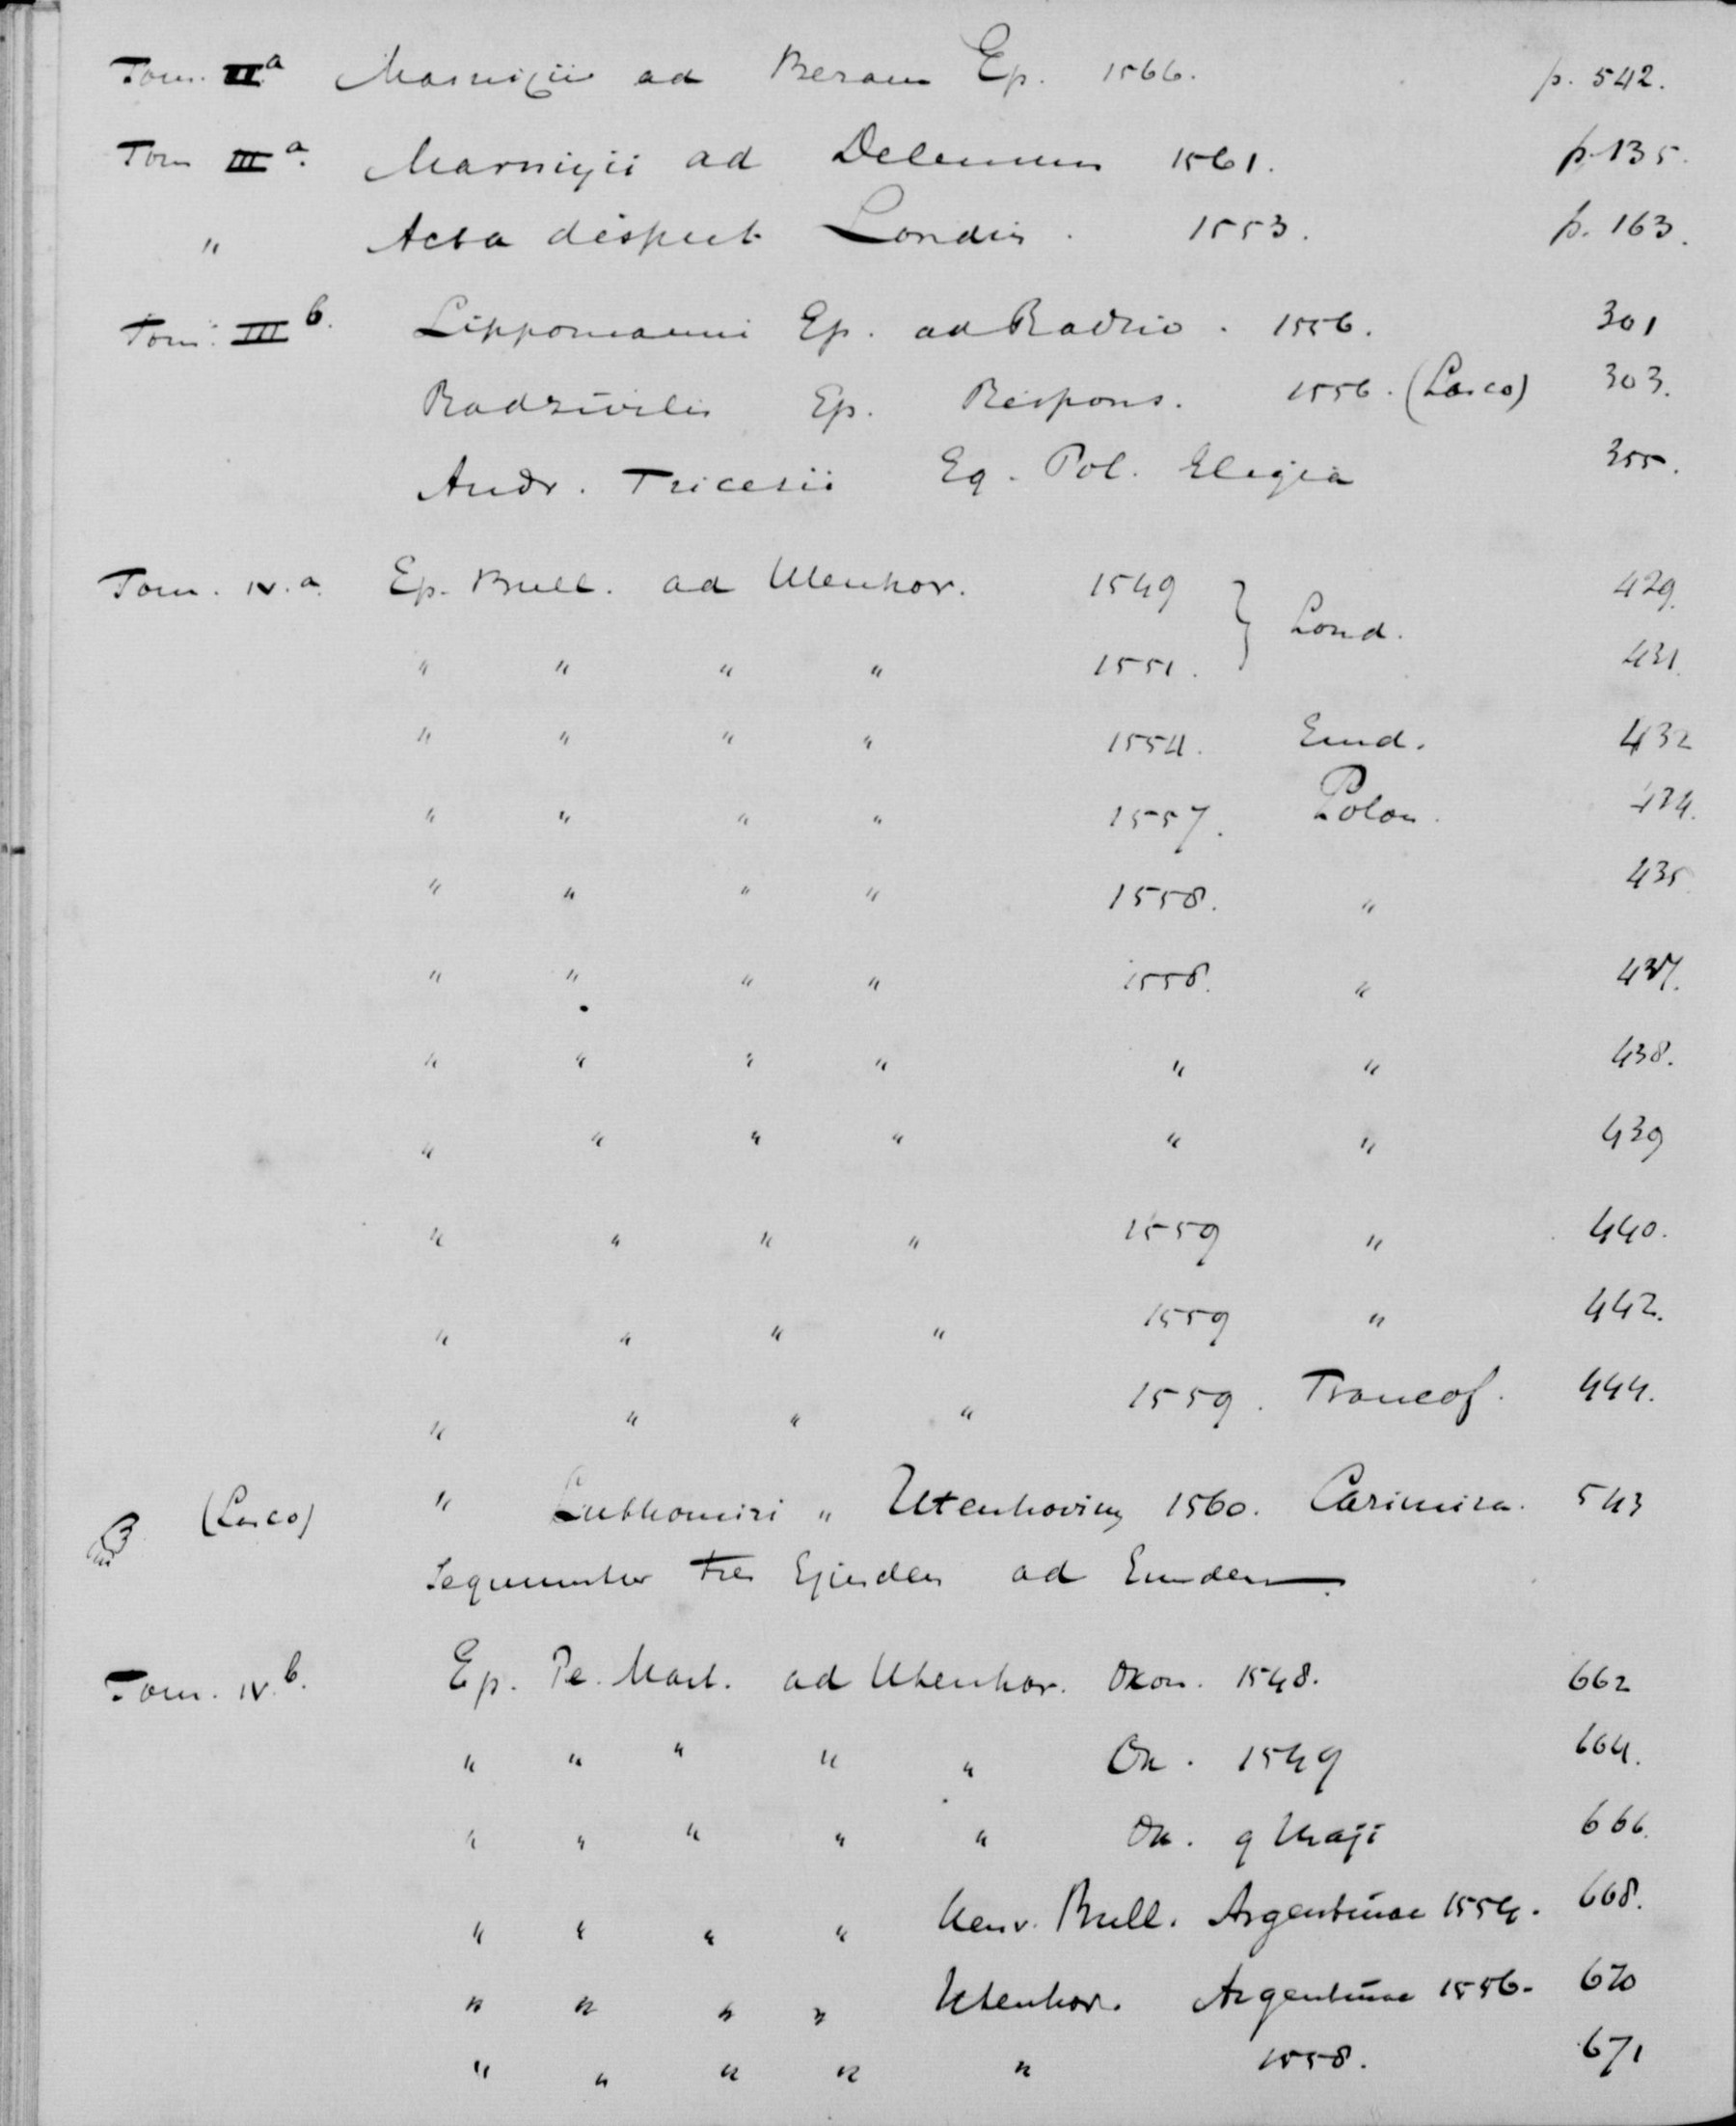 Tom. II.a Marnixii ad Bezam Ep. 1566. p. 542.
Tom III a. Marnixii ad Delenum 1561. p. 135.
" Acta disput Londin. 1553. p. 163.
Tom. III b. Lippomanni Ep. ad Radziv. 1556. 301
Radzivilis Ep. Respons. 1556. (Lasco) 303.
Andr. Tricesii Eq. Pol. Elegia 355.
Tom. IV. a. Ep. Bull. ad Utenhov. 1549 } Lond. 429.
" " " " 1551. 431.
" " " " 1554. Emd. 432
" " " " 1557. Polon. 434.
" " " " 1558. " 435
" " " " 1558. " 437.
" " " " " " 438.
" " " " " " 439
" " " " 1559 " 440.
" " " " 1559 " 442.
" " " " 1559. Francof. 444.
(Lasco) " Lubhomiri " Utenhovium 1560. Casimira. 543
Sequuntur tres Ejusdem ad Eundem.
Tom. IV. b. Ep. Pe. Mart. ad Utenhov. Oxon. 1548. 662
" " " " " Ox. 1549 664.
" " " " " Ox. 9 Maji 666.
" " " " Henr. Bull. Argentinae 1554. 668.
" " " " Utenhov. Argentinae 1556. 670
" " " " " 1558. 671